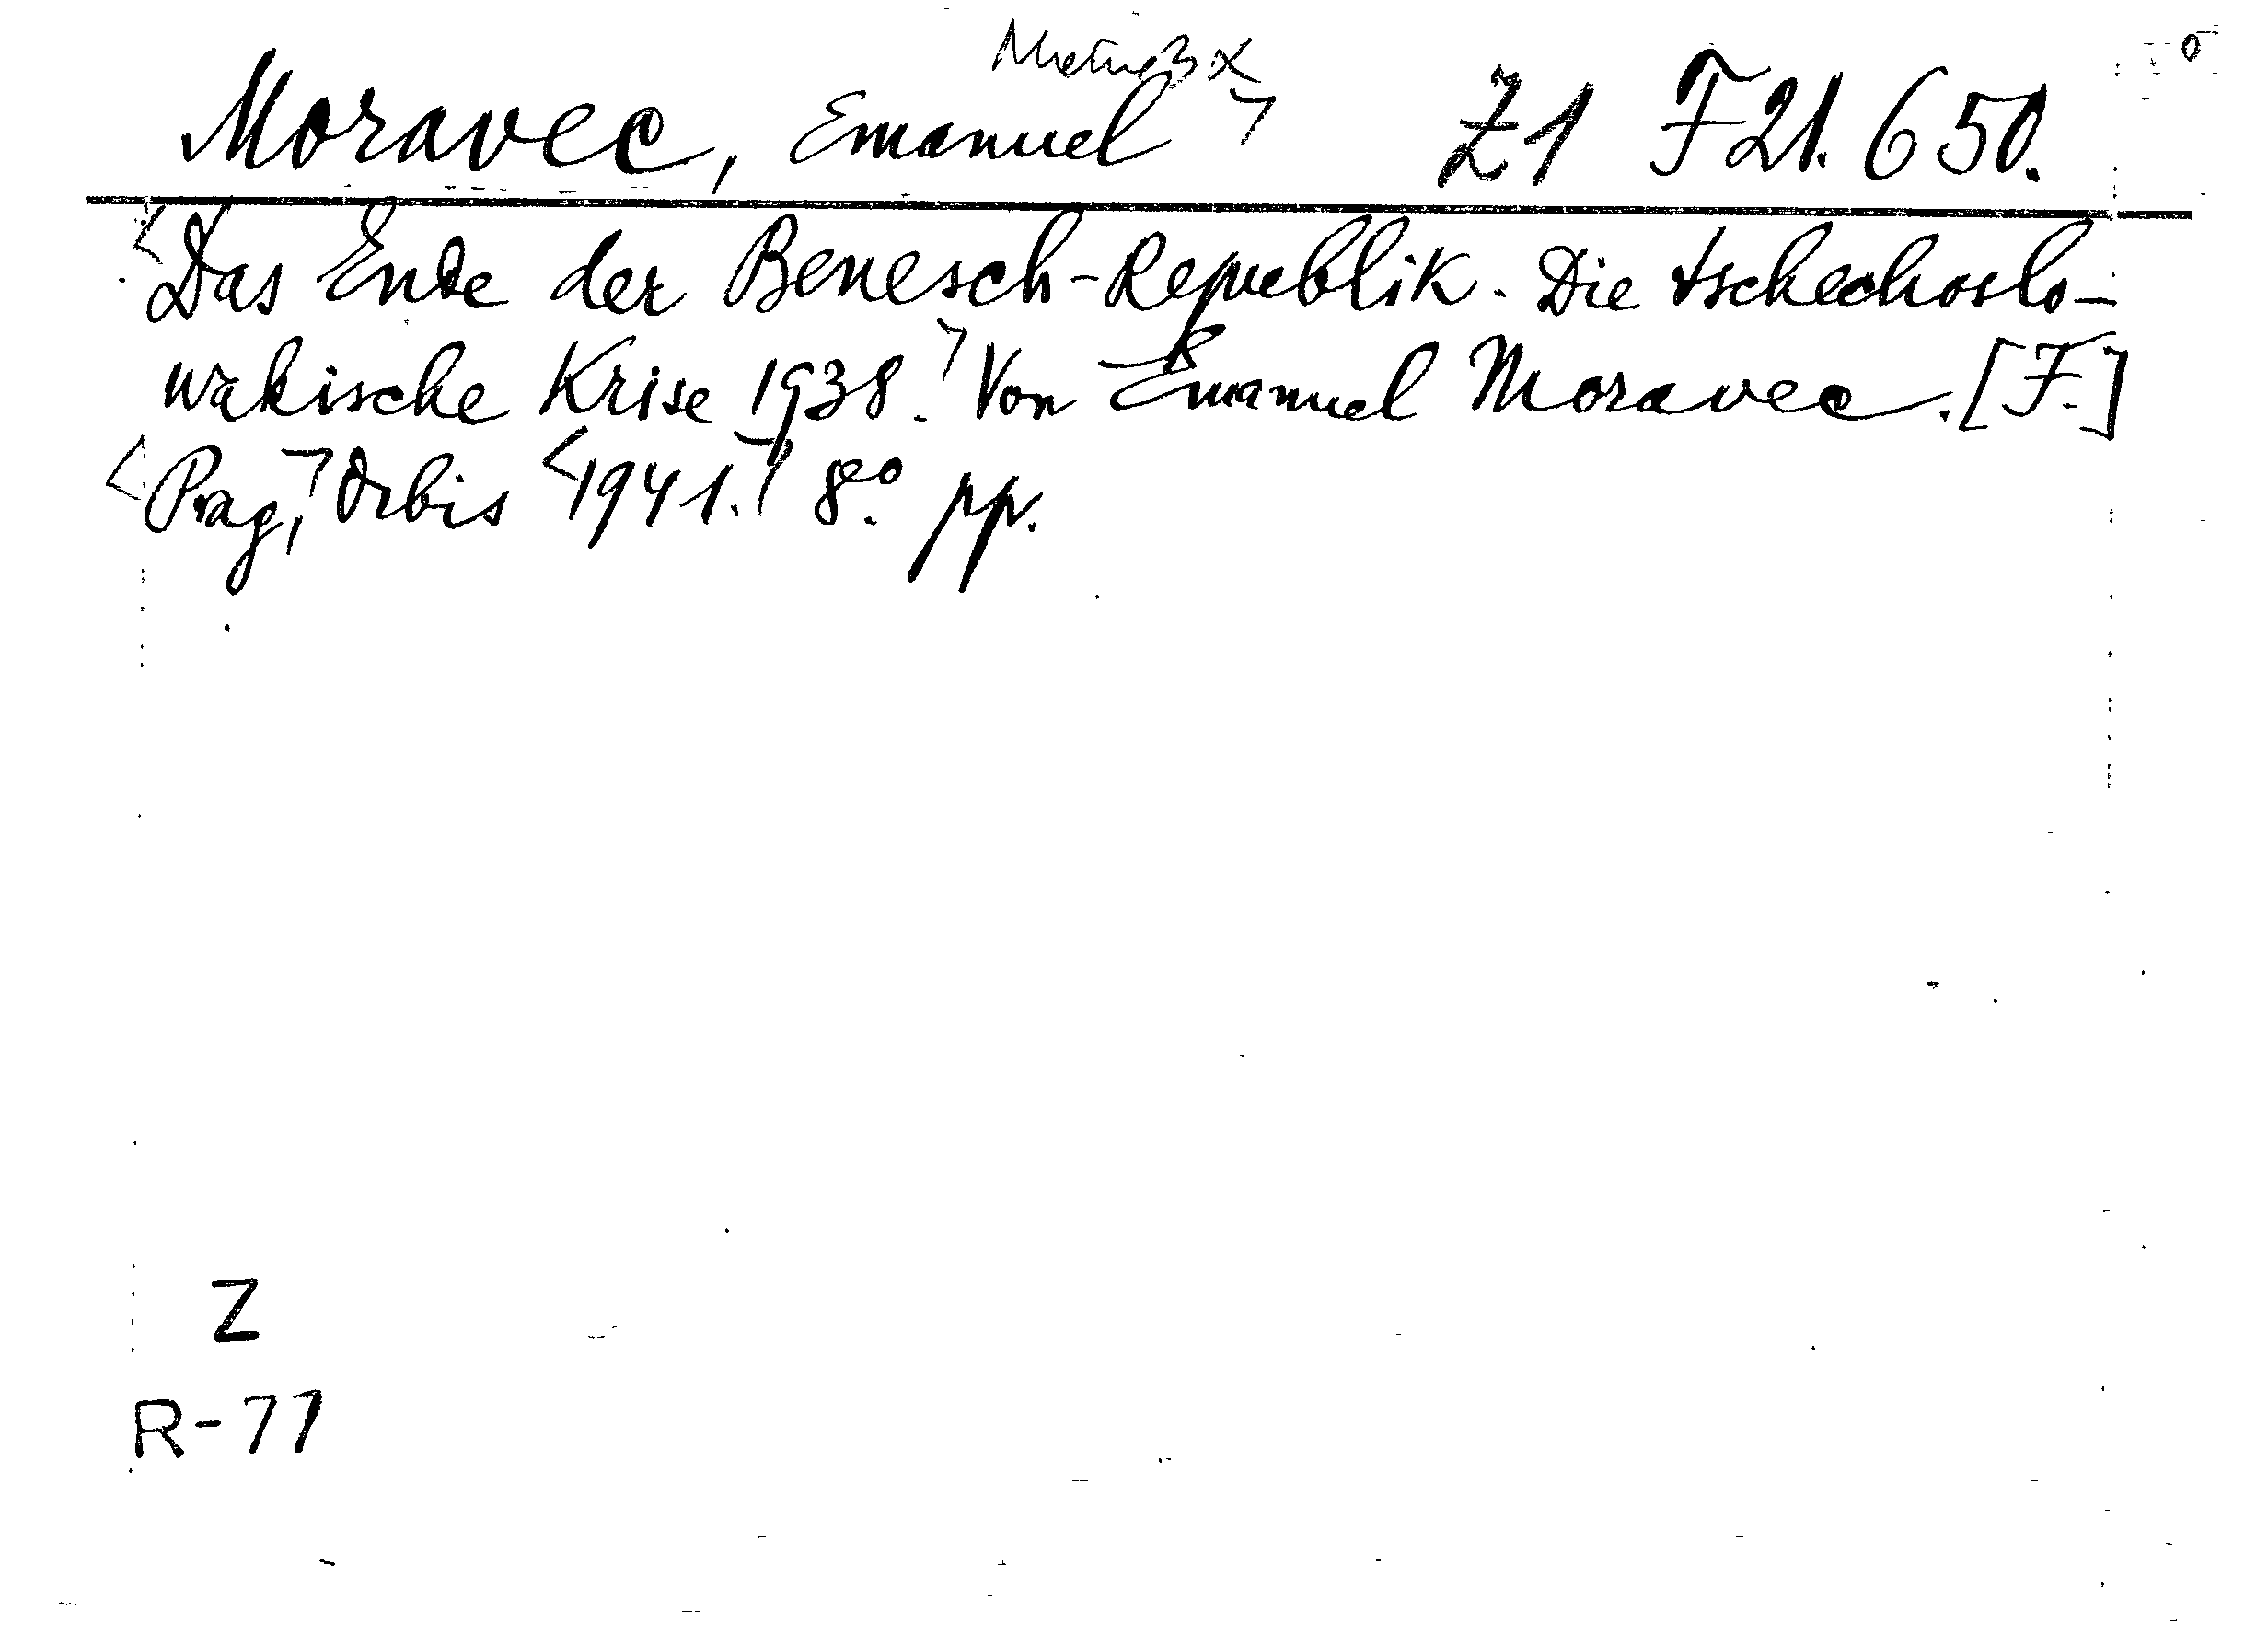 Moravec, Emanuel Z1 F21.650.
Das Ende der Benesch-Republik. Die tschechoslo-
wakische Krise 1938. Von Emanuel Moravec. [F.]
Prag, Orbis 1941. 8°. pp.
Z
R-77